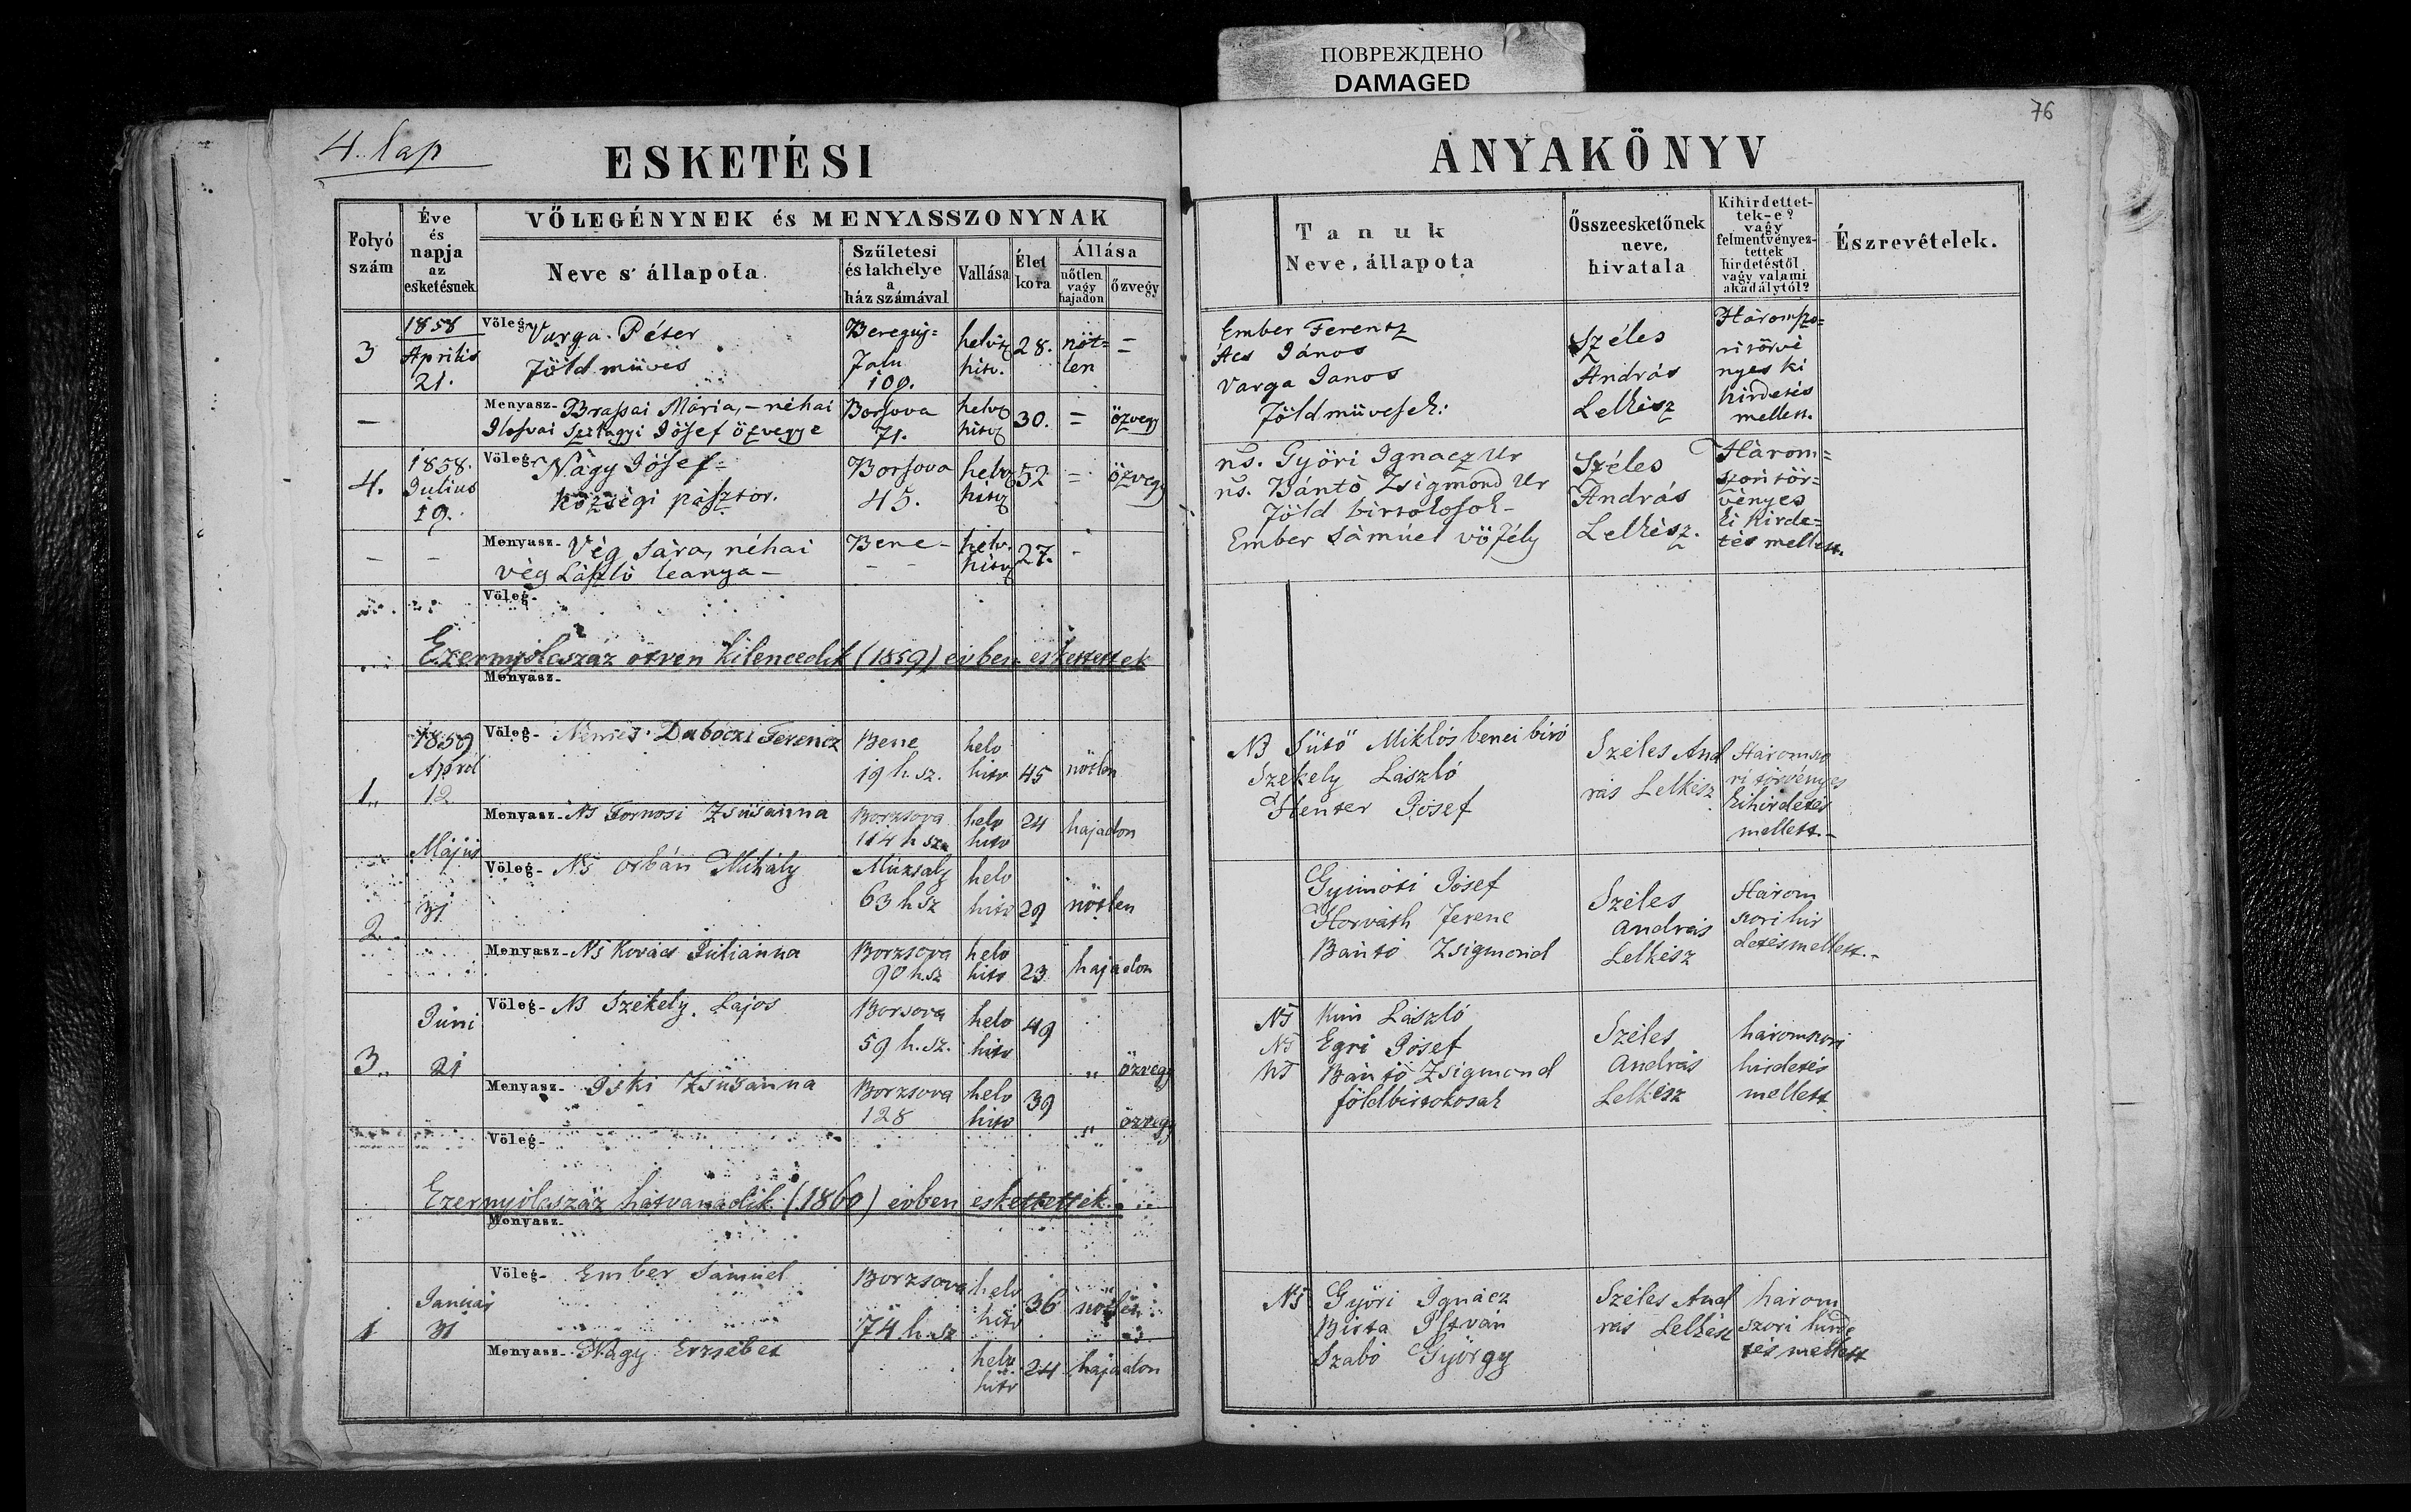 ПОВРЕЖДЕНО
DAMAGED
76
4. lap
ESKETÉSI
ANYAKÖNYV
Folyó
szám
Éve
és
napja
az
esketésnek
VŐLEGÉNYNEK és MENYASSZONYNAK
Neve s' állapota
Születesi
és lakhelye
a
ház számával
Vallása
Élet
kora
Állása
nőtlen
vagy
hajadon
özvegy
Tanuk
Neve, állapota
Összeesketőnek
neve,
hivatala
Kihirdettet-
tek-e?
vagy
felmentvényez-
tettek
hirdetéstől
vagy valami
akadálytól?
Észrevételek.
3
1858
Aprilis
21.
Völeg-
Varga Péter
Földmüves
Bereguj=
falu
109.
helv
hitv.
28.
nöt=
len
=
Ember Ferentz
Ács János
Varga Janos
Földmüvesek:
Széles
András
Lelkész
Háromszo=
ri törvé
nyes ki
hirdetés
mellett.
Menyasz-
Brassai Mária, – néhai
Ilosvai Szilagyi Jósef özvegye
Borsova
71.
helv
hitv
30.
=
özvegy
4.
1858.
Julius
19.
Völeg-
Nagy Jósef=
községi pásztor.
Borsova
45.
helv
hitv
52
=
özvegy
ns. Györi Ignacz Ur
ns. Bántó Zsigmond Ur
Föld birtokosok-
Ember Sámuel vöfély
Széles
András
Lelkész.
Három=
szori tör=
vényes
ki hirde=
tés mellett.
Menyasz-
Vég Sára, néhai
Vég László leanya-
Bene-
helv.
hitv
27.
Völeg-
Ezernyolcszáz ötven kilencedik (1859) évben eskettettek
Menyasz-
1..
1859
April
12
Völeg-
Nemes Dabóczi Ferencz
Bene
19 h sz.
helv
hitv
45
nötlen
NB Sütö Miklós benei biró
Székely László
Henter Jósef
Széles And
rás Lelkész
Háromszo
ri törvényes
kihirdetés
mellett.-
Menyasz-
Ns Tornosi Zsúsánna
Borzsova
114 h sza
helv
hitv
24
hajadon
2.
Május
31
Völeg-
Ns Orbán Mihály
Múzsaly
63 h sz
helv
hitv
29
nötlen
Gyimóti Jósef
Horváth Ferenc
Bántó Zsigmond
Széles
András
Lelkész
Három
szori hir
detés mellett.-
Menyasz-
Ns Kovács Juliánna
Borzsova
90 h sz
helv
hitv
23
hajadon
3..
Júni
21
Völeg-
NB Székely Lajos
Borsova
59 h. sz.
helv
hitv
49
„
özvegy
Ns Kún László
Ns Egri Jósef
Ns Bántó Zsigmond
földbirtokosak
Széles
András
Lelkész
háromszori
hirdetés
mellett
Menyasz-
Iski Zsúsánna
Borzsova
128
helv
hitv
39
„
özvegy
Völeg-
Ezernyolcszáz hatvanadik (1860) évben eskettettek.
Menyasz-
1
Január
31
Völeg-
Ember Sámúel
Borzsova
74 h. sz
helv
hitv
36
nötlen
Ns Györi Ignácz
Bista István
Szabó György
Széles And
rás Lelkész
három
szori hirde
tés mellett
Menyasz-
Nagy Erzsébet
helv
hitv
24
hajadon